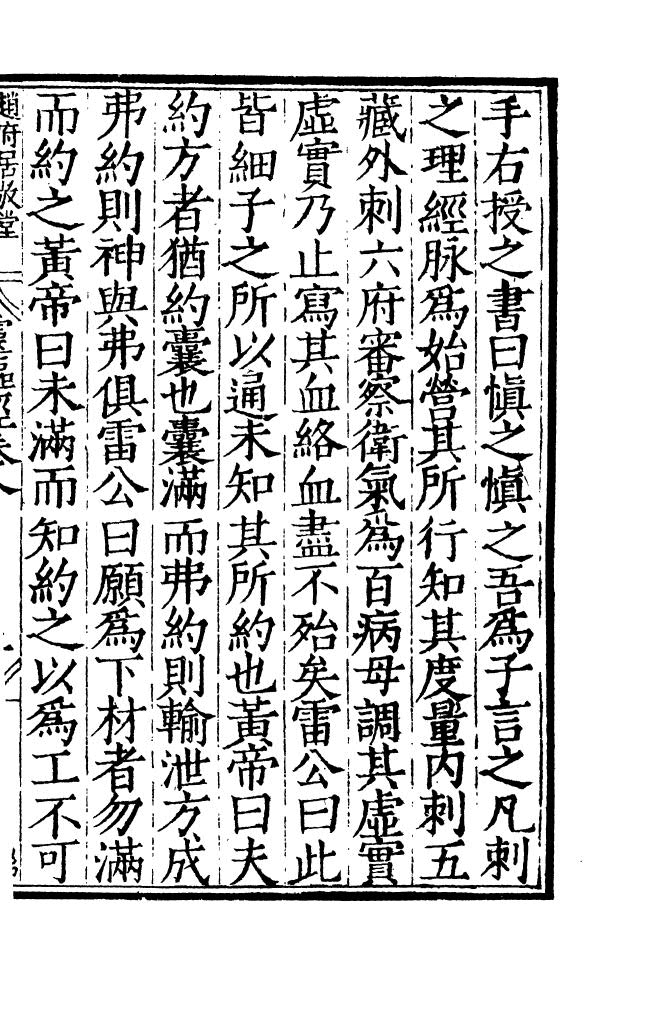 手右授之書曰慎之慎之吾爲子言之凡刺
之理經脉爲始營其所行知其度量内刺五
藏外刺六府審察衛氣爲百病母調其虛實
虛實乃止寫其血絡血盡不殆矣雷公曰此
皆細子之所以通未知其所約也黃帝曰夫
約方者猶約囊也囊滿而弗約則輸泄方成
弗約則神與弗俱雷公曰願爲下材者勿滿
而約之黃帝曰未滿而知約之以爲工不可
趙府居敬堂